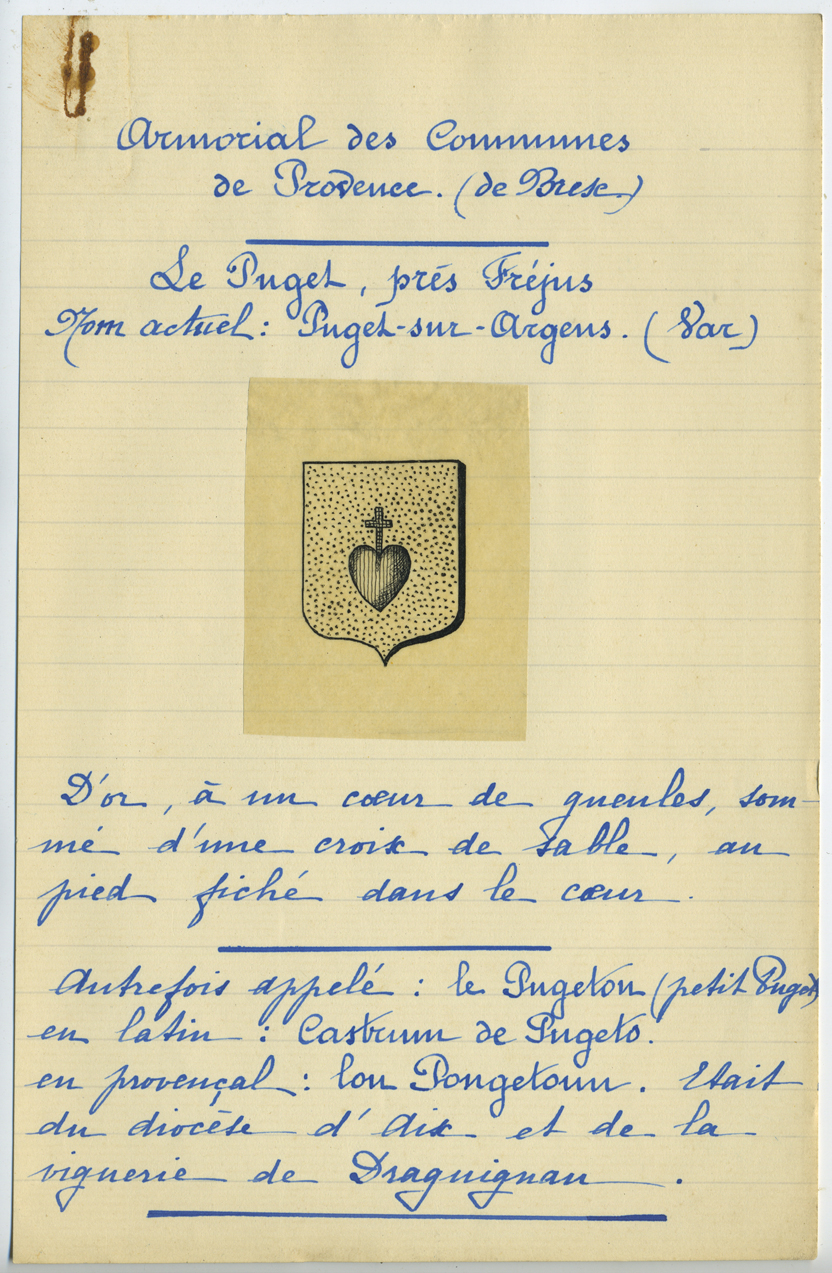 Armorial des Communes
de Provence. (de Bresc.)
Le Puget, prés Fréjus
Nom actuel : Puget-sur-Argens. (Var)
D'or, à un cœur de gueules, som-
mé d'une croix de sable, au
pied fiché dans le cœur.
Autrefois appelé : le Pugeton (petit Puget)
en latin : Castrum de Pugeto.
en provençal : lou Pougetoun. Etait
du diocèse d'Aix et de la
viguerie de Draguignan.